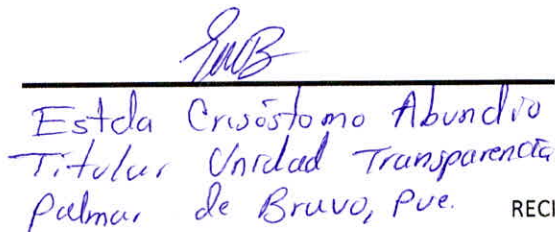 Estela Crisóstomo Abundio
Titular Unidad Transparencia
Palmar de Bravo, Pue. RECI